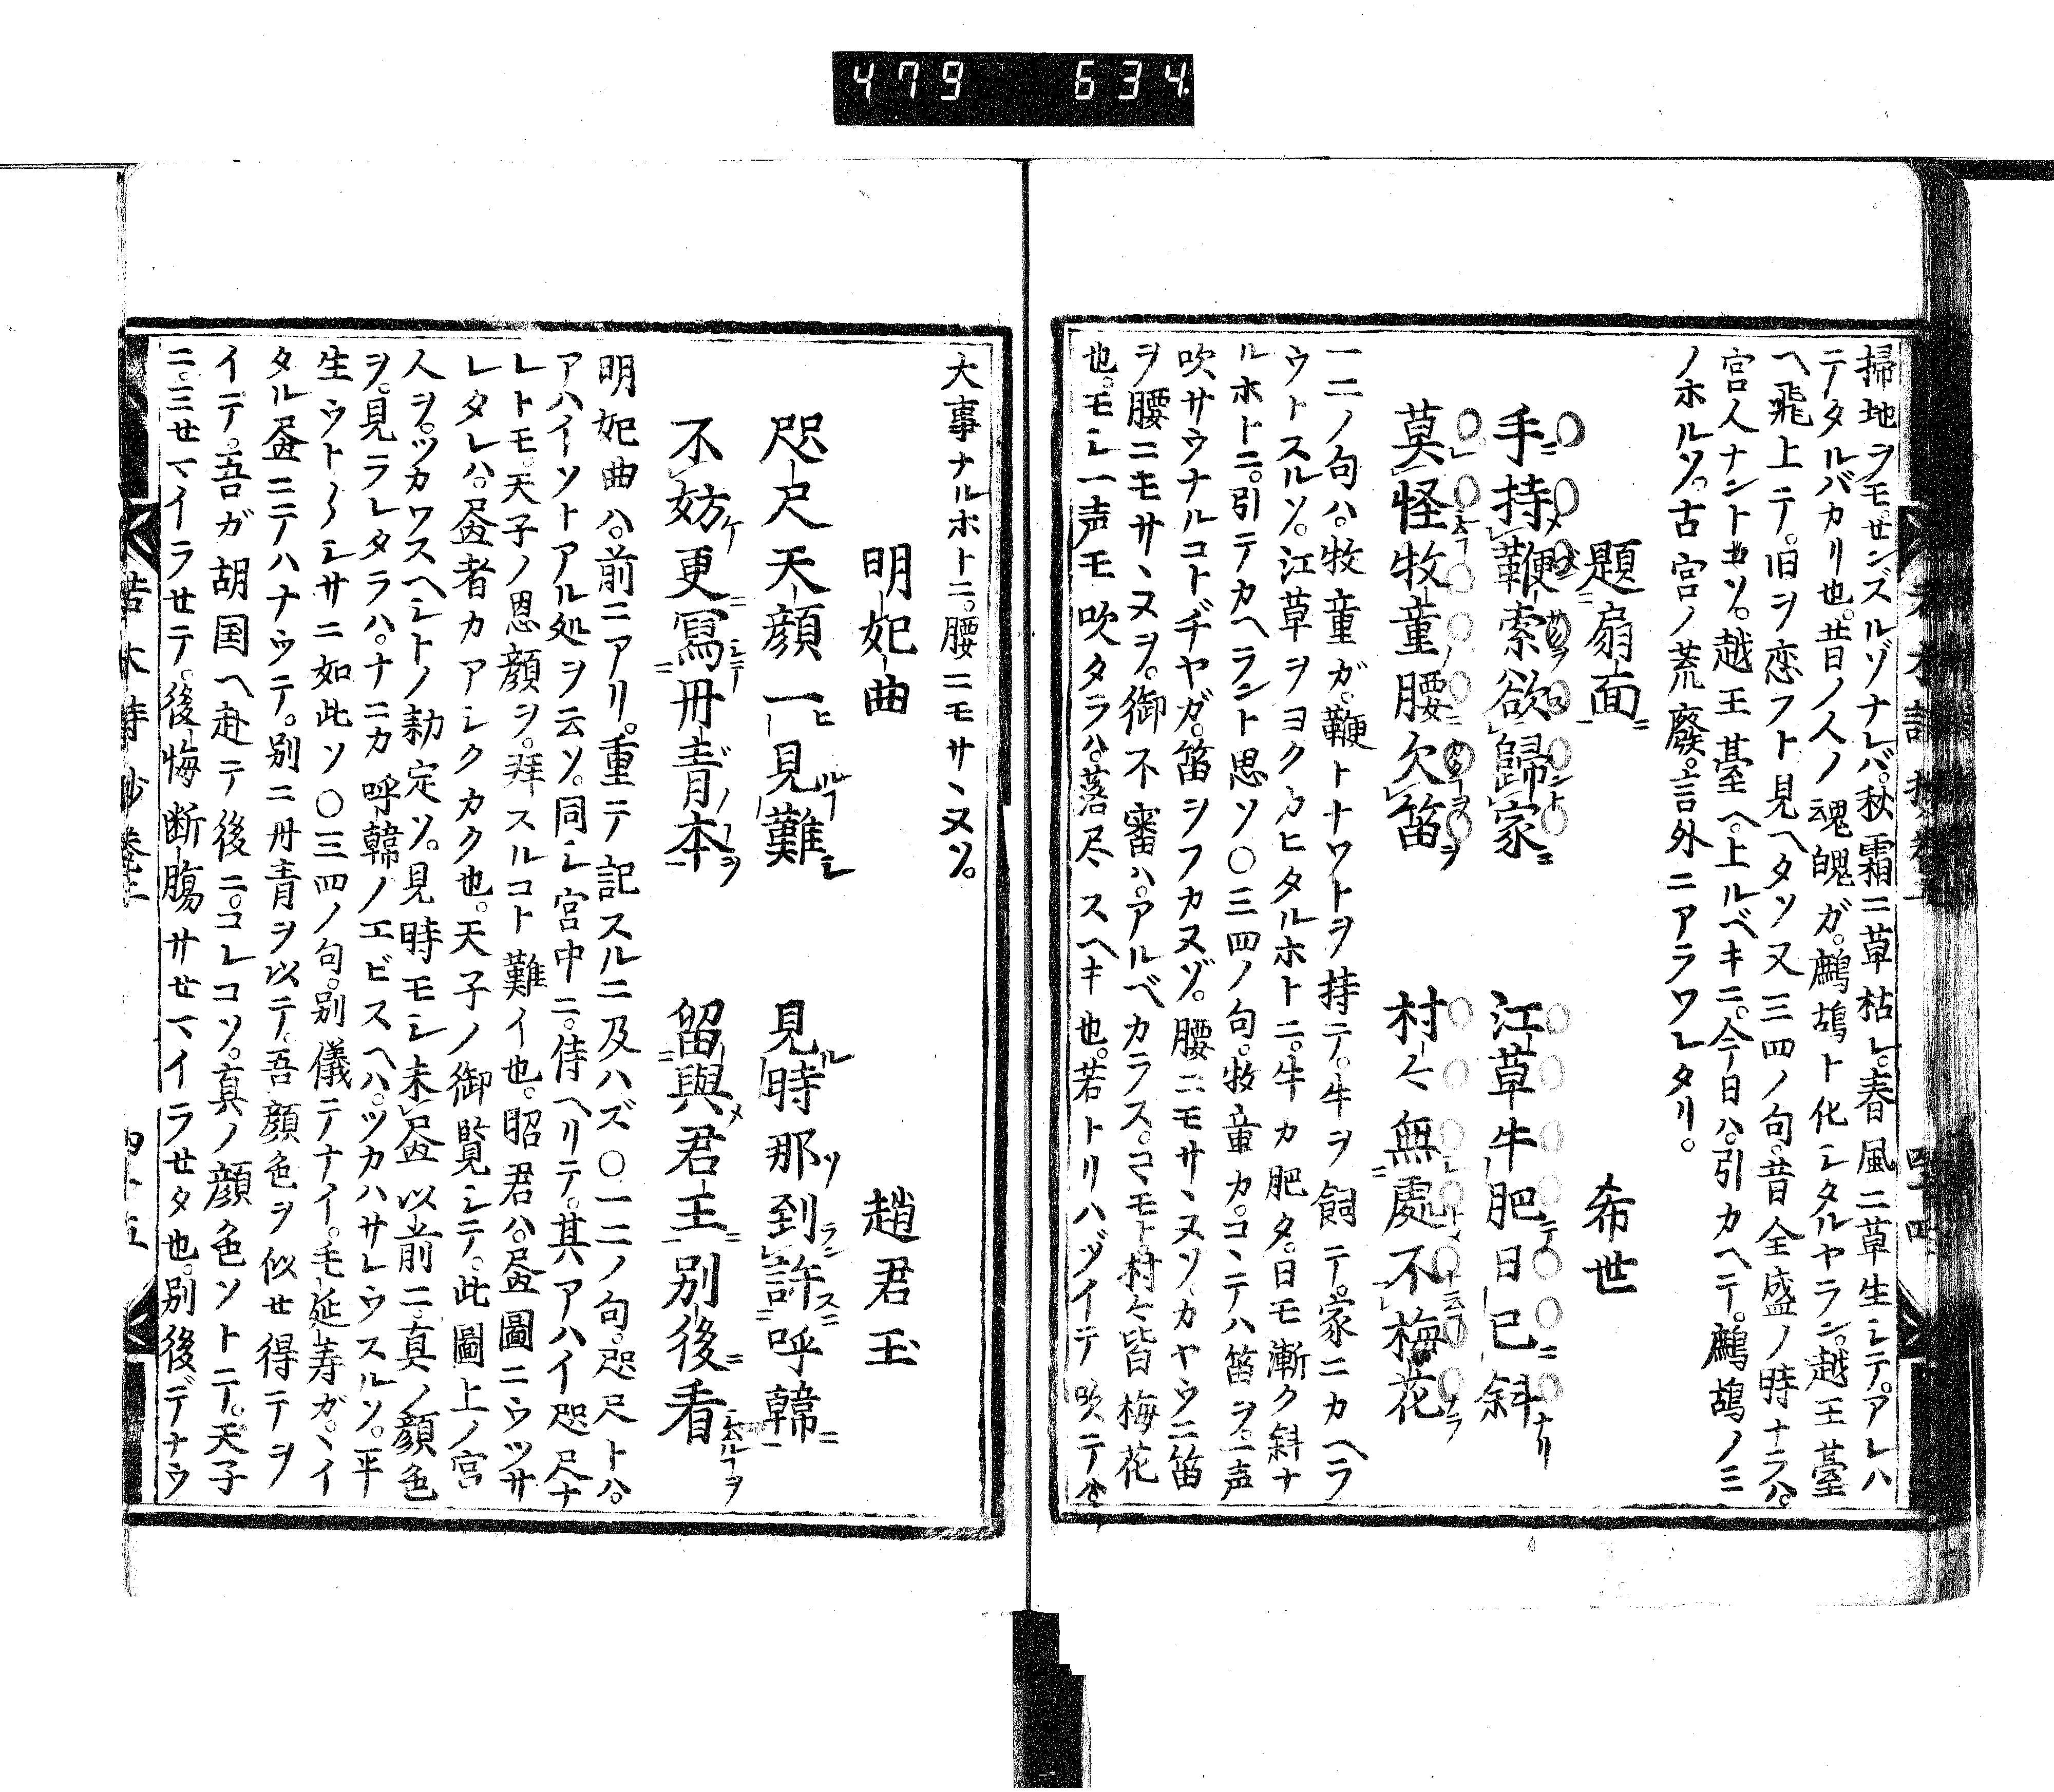 479 634
掃地ヲモ。せンズルゾナレバ。秋霜ニ草枯レ。春風ニ草生レテ。アレハ
テタルバカリ也。昔ノ人ノ魂魄ガ。鷓鴣ト化シタルヤラン。越王䑓
ヘ飛上テ。旧ヲ恋フト見ヘタソ又三四ノ句。昔全盛ノ時ナラハ。
宮人ナントせソ。越王䑓ヘ。上ルベキニ。今日ハ。引カヘテ。鷓鴣ノミ
ノホルソ。古宮ノ荒廢。言外ニアラワレタリ。
題扇面 希世
手持鞭索欲歸家 江草牛肥日已斜
莫怪牧童腰欠笛 村〻無處不梅花
一二ノ句ハ。牧童ガ。鞭トナワトヲ持テ。牛ヲ飼テ。家ニカヘラ
ウトスルソ。江草ヲヨクカヒタルホトニ。牛カ肥タ。日モ漸ク斜ナ
ルホトニ。引テカヘラント思ソ〇三四ノ句。牧童カ。コヽテハ笛ヲ。一声
吹サウナルコトヂヤガ。笛ヲフカヌゾ。腰ニモサヽヌソ。カヤウニ笛
ヲ腰ニモサヽヌヲ。御不審ハ。アルベカラス。コヽモト。村〻皆梅花
也。モシ一声モ吹タラハ。落尽スヘキ也。若トリハヅイテ吹テハ。
大事ナルホトニ。腰ニモサヽヌソ。
明妃曲 趙君玉
咫尺天顔一見難 見時那到許呼韓
不妨更寫丹青本 留與君王別後看
明妃曲ハ。前ニアリ。重テ記スルニ及ハズ〇一二ノ句。咫尺トハ。
アハイソトアル処ヲ云ソ。同シ宮中ニ。侍ヘリテ。其アハイ咫尺ナ
レトモ。天子ノ恩顔ヲ。拜スルコト難イ也。昭君ハ。畫圖ニウツサ
レタレハ。畫者カアシクカク也。天子ノ御覧シテ。此圖上ノ宮
人ヲ。ツカワスヘシトノ勅定ソ。見時モシ未畫以前ニ。真ノ顔色
ヲ。見ラレタラハ。ナニカ呼韓ノエビスヘハ。ツカハサレウスルソ。平
生ウト〱シサニ如此ソ〇三四ノ句。別儀テナイ。毛延寿ガ。ヽイ
タル畫ニテハナウテ。別ニ丹青ヲ以テ。吾顔色ヲ似せ得テヲ
イテ。吾ガ胡国ヘ赴テ後ニ。コレコソ。真ノ顔色ソトニテ。天子
ニ。ミせマイラせテ。後悔断膓サせマイラせタ也。別後デナウ